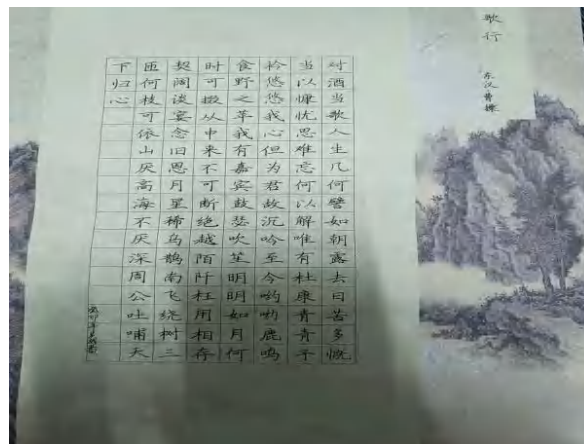 歌行
东汉 曹操
对酒当歌人生几何譬如朝露去日苦多慨
当以慷忧思难忘何以解唯有杜康青青子
衿悠悠我心但为君故沉吟至今呦呦鹿鸣
食野之苹我有嘉宾鼓瑟吹笙明明如月何
时可掇从中来不可断绝越陌阡枉用相存
契阔谈宴念旧思月星稀乌鹊南飞绕树三
匝何枝可依山厌高海不厌深周公吐哺天
下归心